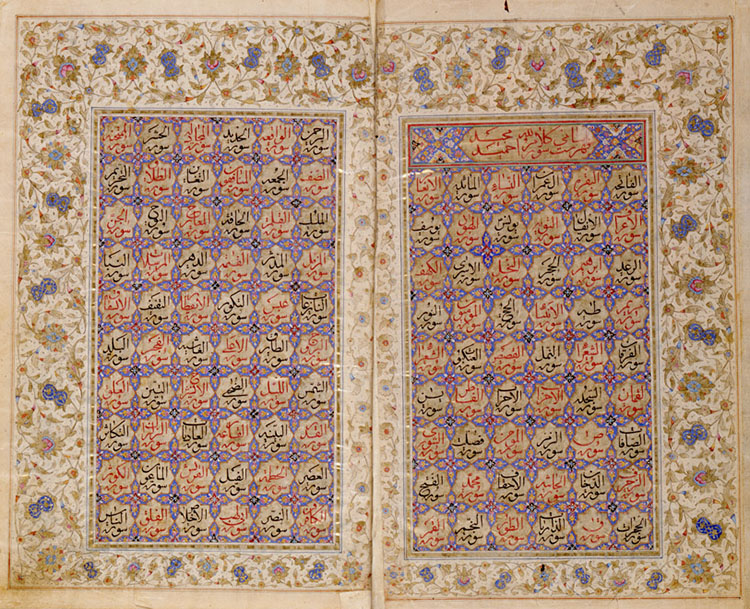 سورة الفاتحه سورة البقره سورة ال عمران سورة النساء سورة المائده سورة الانعام
سورة الاعراف سورة الانفال سورة التوبه سورة يونس سورة هود سورة يوسف
سورة الرعد سورة ابرهيم سورة الحجر سورة النحل سورة الاسرى سورة الكهف
سورة مريم سورة طه سورة الانبيا سورة الحج سورة المومنون سورة النور
سورة الفرقان سورة الشعرا سورة النمل سورة القصص سورة العنكبوت سورة الروم
سورة لقمان سورة السجده سورة الاحزاب سورة سورة فاطر سورة يس
سورة الصافات سورة ص سورة الزمر سورة المومن سورة فصلت سورة الشورى
سورة الزخرف سورة الدخان سورة الجاثيه سورة الاحقاف سورة محمد سورة الفتح
سورة الحجرات سورة ق سورة الذاريات سورة الطور سورة النجم سورة القمر
سورة الرحمن سورة الواقعه سورة الحديد سورة المجادله سورة الحشر سورة الممتحنه
سورة الصف سورة الجمعه سورة المنافقين سورة التغابن سورة الطلاق سورة التحريم
سورة الملك سورة القلم سورة الحاقه سورة المعارج سورة نوح سورة الجن
سورة المزمل سورة المدثر سورة القيمه سورة الدهر سورة المرسلات سورة النبا
سورة النازعات سورة عبس سورة التكوير سورة الانفطار سورة المطففين سورة الانشقاق
سورة البروج سورة الطارق سورة الاعلى سورة الغاشيه سورة الفجر سورة البلد
سورة الشمس سورة الليل سورة الضحى سورة سورة التين سورة العلق
سورة القدر سورة البينه سورة سورة العاديات سورة القارعه سورة التكاثر
سورة العصر سورة الهمزه سورة الفيل سورة قريش سورة الماعون سورة الكوثر
سورة الكافرون سورة النصر سورة سورة الاخلاص سورة الفلق سورة الناس